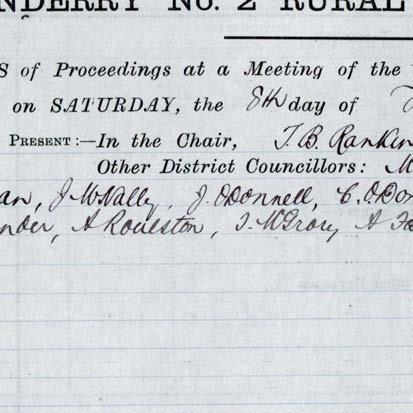 NDERRY No. 2 RURAL
S of Proceedings at a Meeting of the
on SATURDAY, the 8th day of
PRESENT:—In the Chair, T. B. Rankin
Other District Councillors: M
an, J McNally, J. O'Donnell, C. O'Don
nder, A Roulston, J. McGrory A